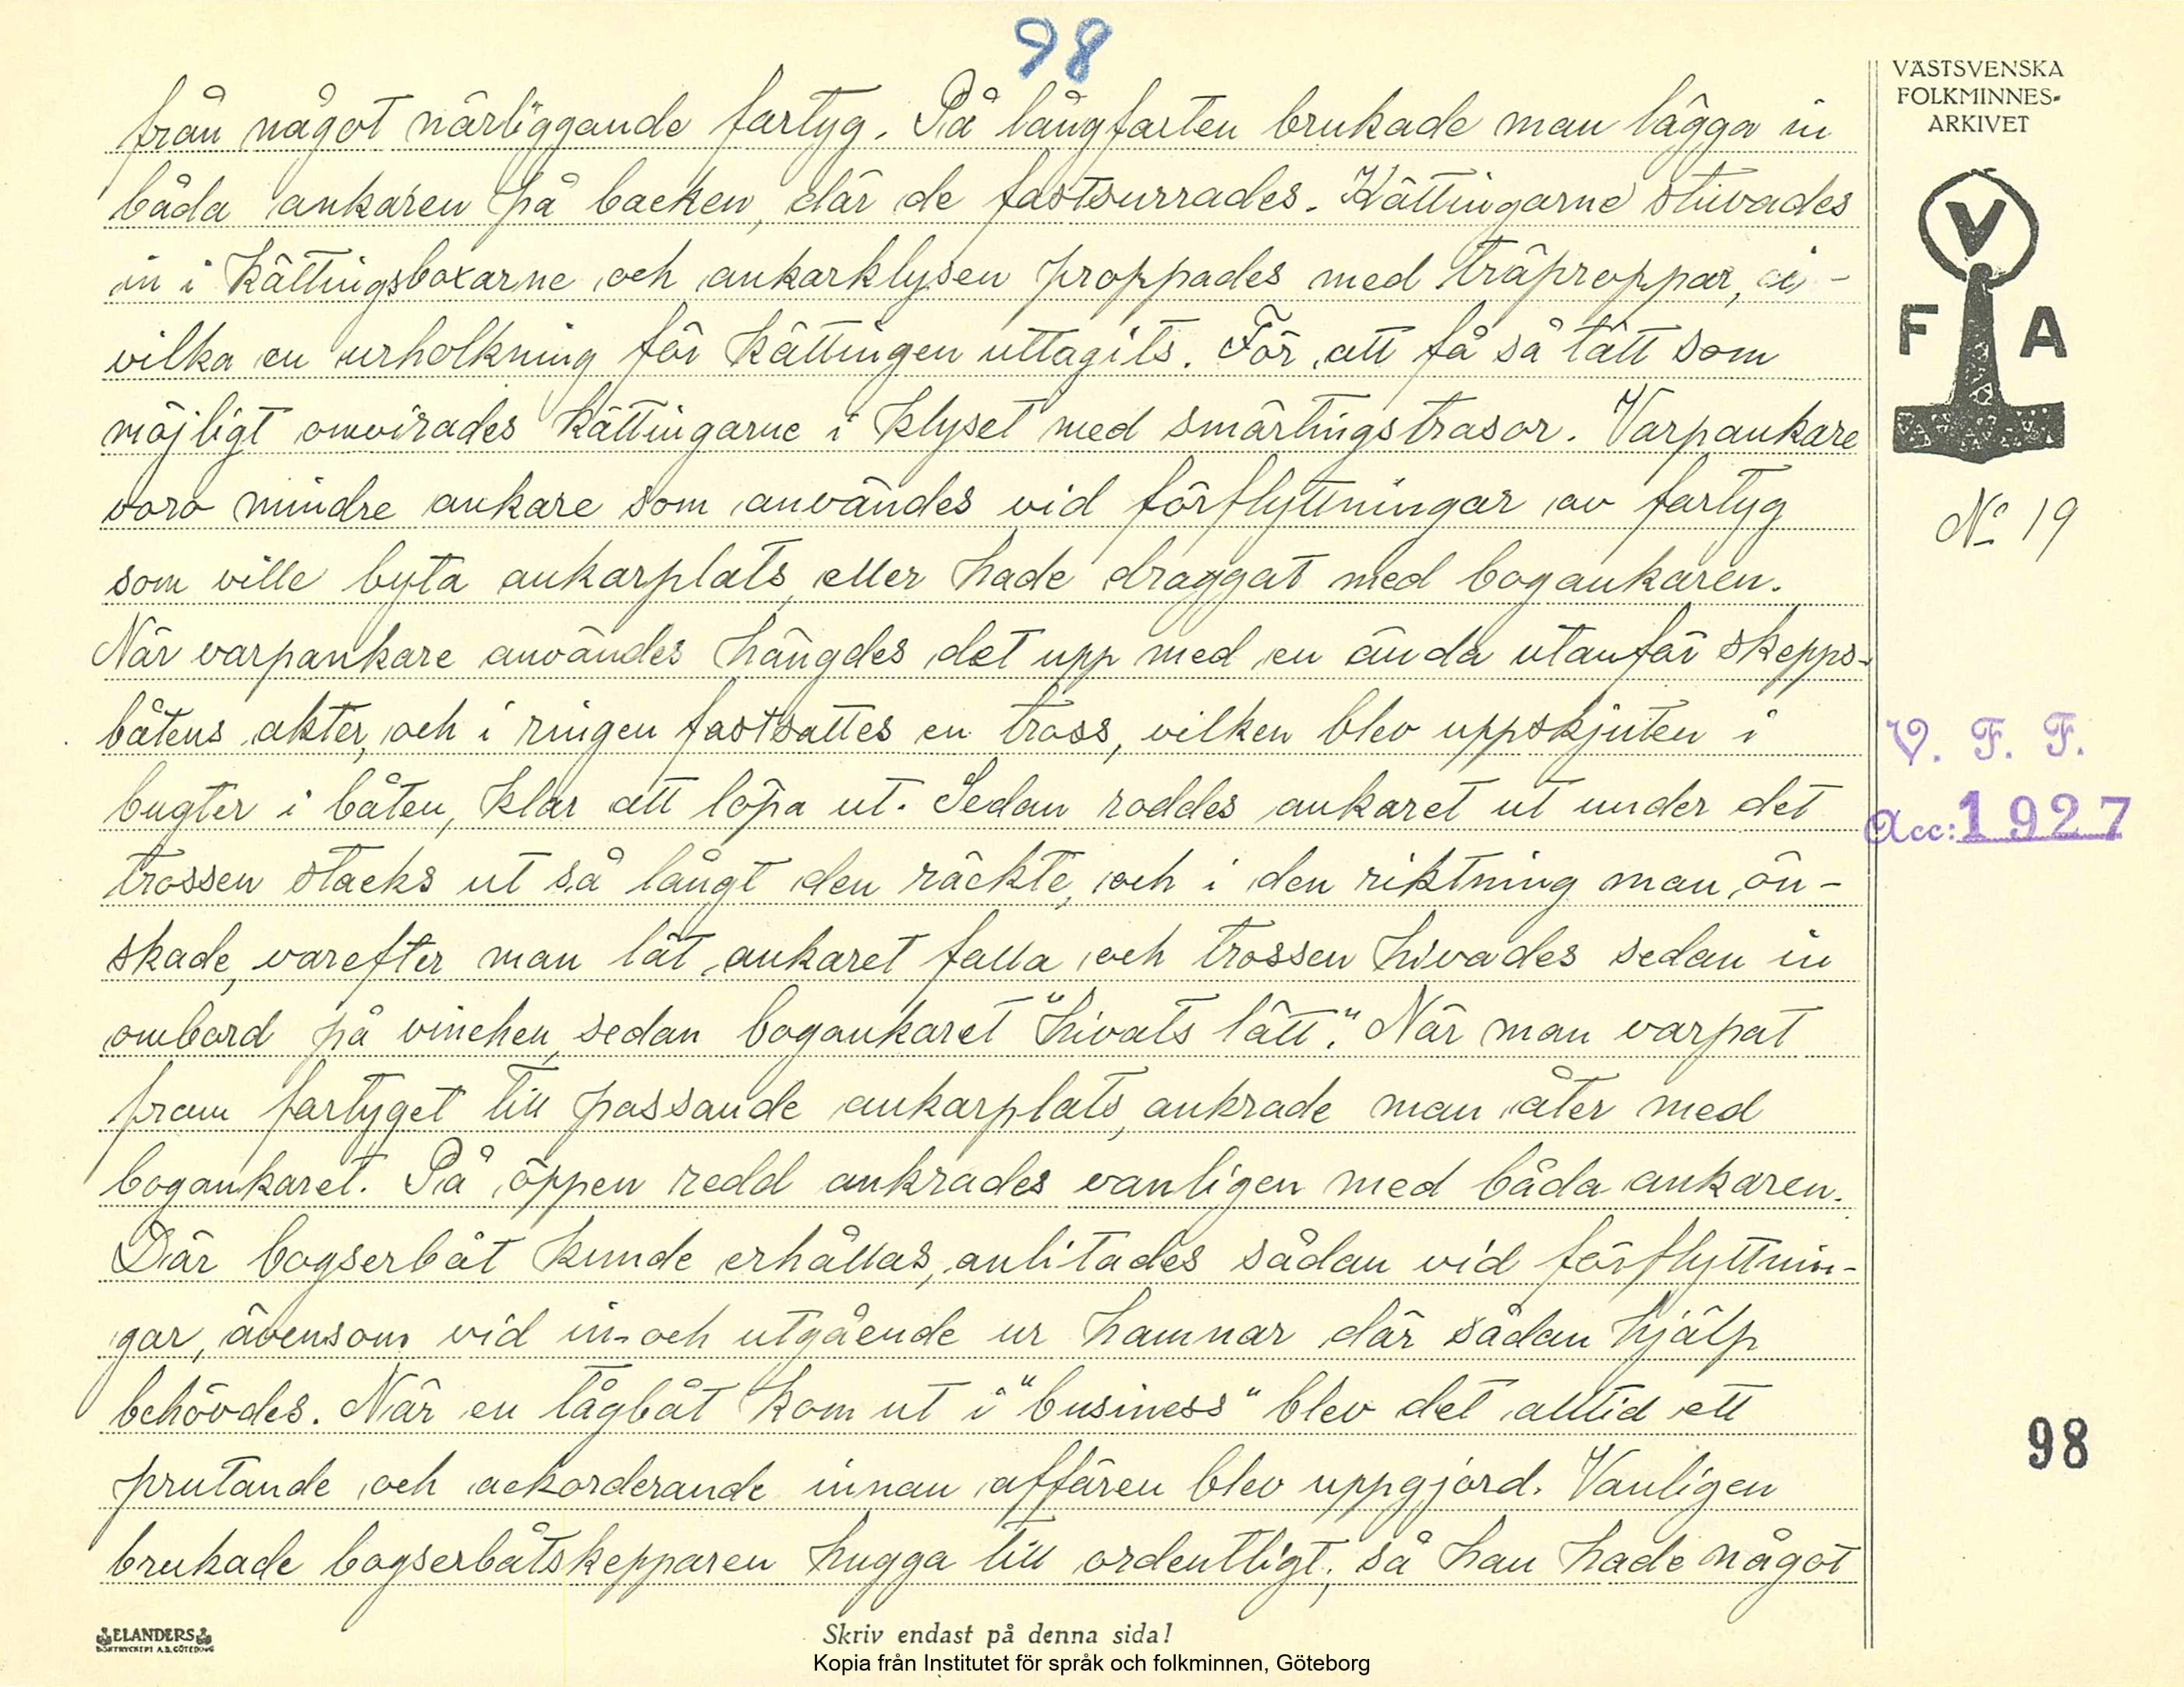 98
från något närliggande fartyg. På långfarten brukade man lägga in
båda ankaren på backen, där de fastsurrades. Kättingarne stuvades
in i kättingsboxarne och ankarklysen proppades med träproppar, i
vilka en urholkning för kättingen uttagits. För att få så tätt som
möjligt omvirades kättingarne i klyset med smärtingstrasor. Varpankare
voro mindre ankare som användes vid förflyttningar av fartyg
som ville byta ankarplats, eller hade draggat med bogankaren.
När varpankare användes hängdes det upp med en ända utanför skepps-
båtens akter, och i ringen fastsattes en tross, vilken blev uppskjuten i
bugter i båten, klar att löpa ut. Sedan roddes ankaret ut under det
trossen stacks ut så långt den räckte, och i den riktning man ön-
skade, varefter man lät ankaret falla och trossen hivades sedan in
ombord på vinchen, sedan bogankaret "hivats lätt". När man varpat
fram fartyget till passande ankarplats, ankrade man åter med
bogankaret. På öppen redd ankrades vanligen med båda ankaren.
Där bogserbåt kunde erhållas, anlitades sådan vid förflyttnin-
gar, ävensom vid in- och utgående ur hamnar där sådan hjälp
behövdes. När en tågbåt kom ut i "business" blev det alltid ett
prutande och ackorderande innan affären blev uppgjord. Vanligen
brukade bogserbåtskepparen hugga till ordentligt, så han hade något
VÄSTSVENSKA
FOLKMINNES-
ARKIVET
V
F A
No 19
V. F. F.
Acc: 1927
98
ELANDERS
BOKTRYCKERI A.B. GÖTEBORG
Skriv endast på denna sida!
Kopia från Institutet för språk och folkminnen, Göteborg